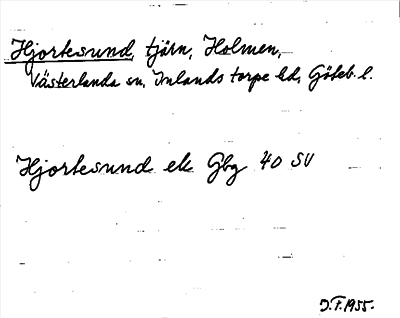 Hjortesund, tjärn, Holmen,
Västerlanda sn, Inlands torpe hd, Göteb. l.
Hjortesund ek Gbg 40 SV
J.F. 1955.